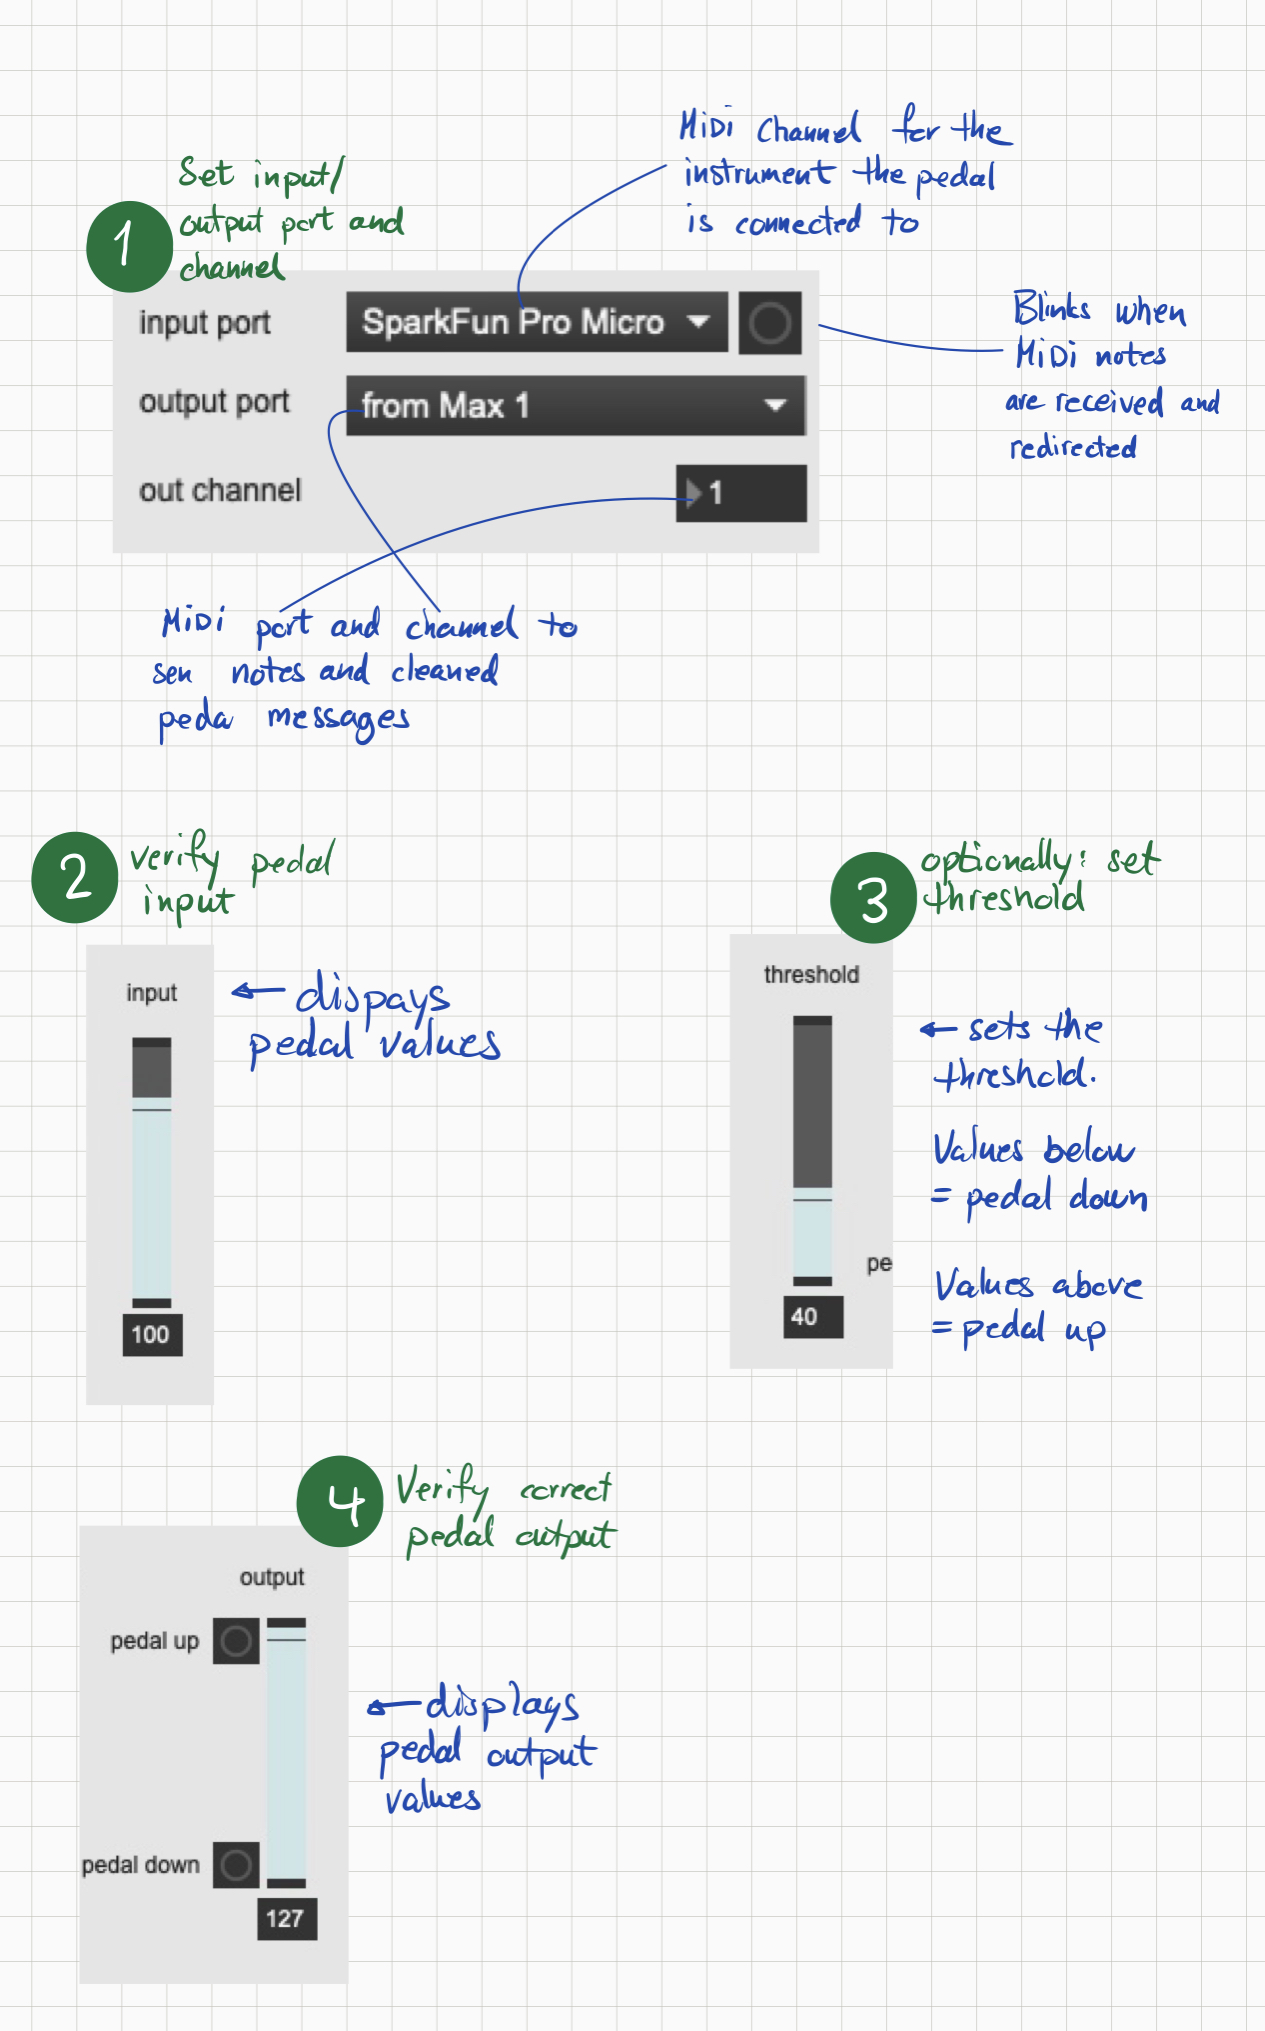 MiDi Channel for the
instrument the pedal
is connected to
1
Set input/
output port and
channel
input port
SparkFun Pro Micro
output port
from Max 1
out channel
1
Blinks when
MiDi notes
are received and
redirected
MiDi port and channel to
sen notes and cleaned
peda messages
2
verify pedal
input
input
100
← dispays
pedal values
3
optionally: set
threshold
threshold
pe
40
← sets the
threshold.
Values below
= pedal down
Values above
= pedal up
4
Verify correct
pedal output
output
pedal up
pedal down
127
← displays
pedal output
values